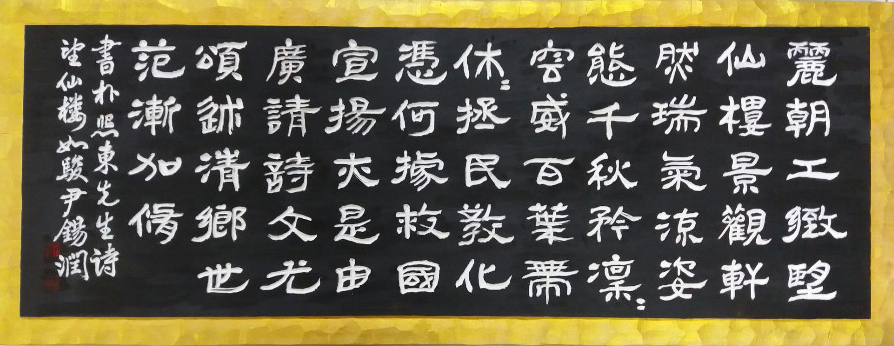 麗朝工緻望
仙樓景觀軒
然瑞氣流姿
態千秋矜凜〻
容威百葉帶
休〻拯民敎化
憑何據救國
宣揚亦是由
廣請詩文尤
頌述淸鄉世
范漸加脩
書朴熙東先生詩
望仙樓 如駿尹錫潤